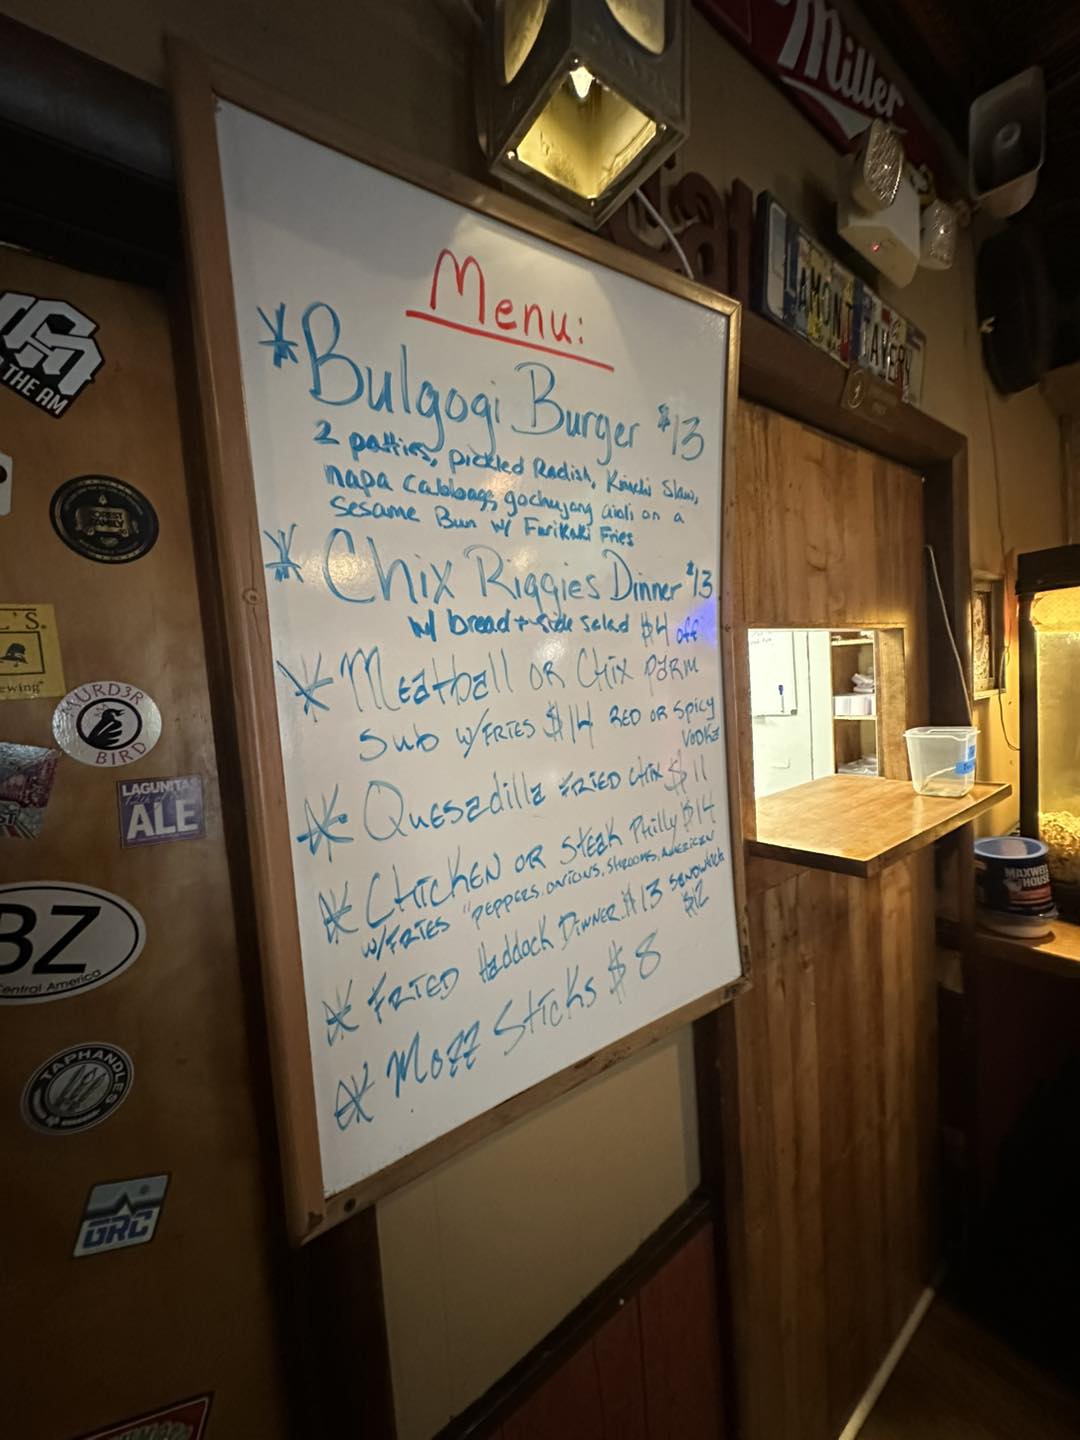 Miller
LAMONT TAVERN
Menu:
Bulgogi Burger $13
2 patties, pickled Radish, Kimchi Slaw,
napa cabbage, gochujang aioli on a
Sesame Bun w/ Furikaki Fries
Chix Riggies Dinner $13
w/ bread + side salad $4 off
Meatball OR Chix Parm
Sub w/FRIES $14 RED OR Spicy
Vodka
Quesadilla FRIED Chix $11
Chicken OR Steak Philly $14
w/FRIES "PEPPERS, ONIONS, SHROOMS, AMERICAN
FRIED Haddock Dinner $13 Sandwich
$12
Mozz Sticks $8
THE AM
FOREST
FAMILY
L'S.
ewing
MURD3R
BIRD
LAGUNITAS
ALE
BZ
Central America
TAPHANDLES
GRC
MAXWELL
HOUSE